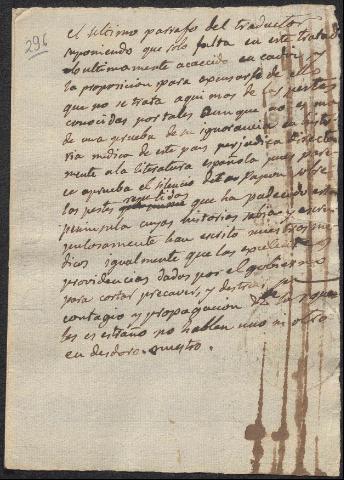 296
el ultimo parrafo del traductor
suponiendo que solo falta en este tratado
lo ultimamente acaecido en Cadiz y
la proposicion para escusarse de ello
que no se trata aqui mas de las pestes
conocidas por tales aunque no es mas
de una prueba de su ignorancia en la histo
ria medica de este pais perjudica directa
mente a la literatura española pues pare
ce aprueba el silencio de sobre
las pestes repetidas que ha padecido esta
peninsula cuyas historias sabia y escru
pulosamente han escrito nuestros me
dicos igualmente que las excelentes
providencias dadas por el gobierno
para cortar precaver, y destruir su
contagio y propagacion de las qua
les es estraño no hablen uno ni otro
en desdoro nuestro.